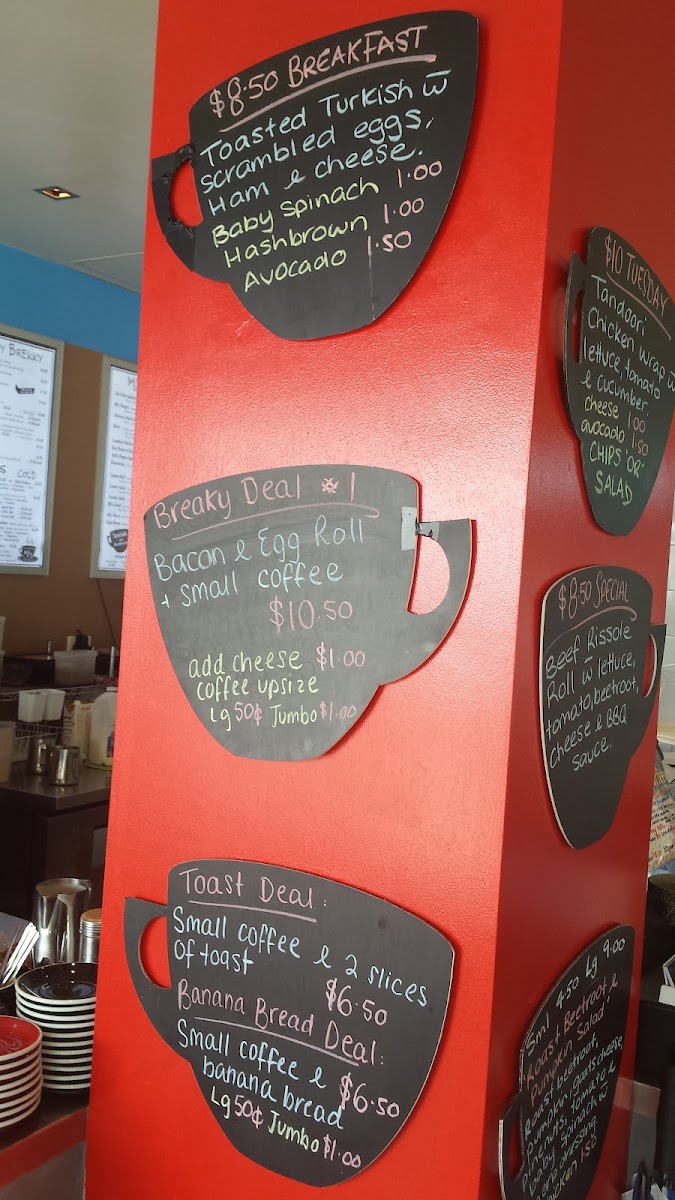 $8.50 BREAKFAST
Toasted Turkish w̄
scrambled eggs,
Ham & cheese.
Baby Spinach 1.00
Hashbrown 1.00
Avocado 1.50
Breaky Deal # 1
Bacon & Egg Roll
+ small coffee
$10.50
add cheese $1.00
coffee upsize
Lg 50¢ Jumbo $1.00
Toast Deal:
Small coffee & 2 slices
of toast
$6.50
Banana Bread Deal:
Small coffee &
banana bread $6.50
Lg 50¢ Jumbo $1.00
$10 TUESDAY
Tandoori
Chicken wrap w̄
lettuce, tomato
& cucumber.
cheese 1.00
avocado 1.50
CHIPS OR
SALAD
$8.50 SPECIAL
Beef Rissole
Roll w̄ lettuce,
tomato, beetroot,
cheese & BBQ
sauce.
Sml 4.50 Lg 9.00
Roast Beetroot &
Pumpkin Salad
Roast beetroot,
Pumpkin, goats cheese
Pinenuts, tomato &
baby Spinach w̄
dressing.
Chicken 1.50
BREKKY
COLD